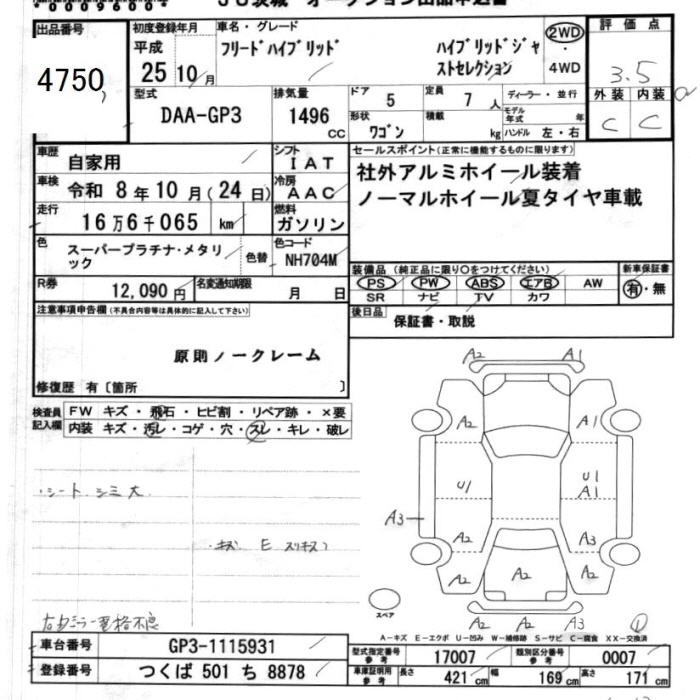 00009600
JU茨城 オークション出品申込書
出品番号 4750
初度登録年月 平成 25 10月
車名・グレード フリードハイブリッド ハイブリッドジャストセレクション
2WD ・ 4WD
評価点 3.5
外装 C 内装 C
型式 DAA-GP3
排気量 1496 CC
ドア 5 定員 7 人 ディーラー・並行
形状 ワゴン 積載 kg モデル年式 年 ハンドル 左・右
車歴 自家用
シフト IAT
車検 令和 8年 10月 (24日)
冷房 AAC
走行 16万6千065 km
燃料 ガソリン
色 スーパープラチナ・メタリック 色替
色コード NH704M
R券 12,090円 名変通知期限 月 日
セールスポイント(正常に機能するものに限ります)
社外アルミホイール装着
ノーマルホイール夏タイヤ車載
装備品 (純正品に限り○をつけてください)
PS PW ABS エアB AW
SR ナビ TV カワ
新車保証書 有・無
後日品 保証書・取説
注意事項申告欄(不具合内容等は具体的に記入して下さい)
原則ノークレーム
修復歴 有〔箇所 〕
検査員記入欄
FW キズ・飛石・ヒビ割・リペア跡・×要
内装 キズ・汚レ・コゲ・穴・スレ・キレ・破レ
・シート シミ大
・キズ E スリキズ
A2 A1
A2 A1
U1 U1 A1
A3 A2 A3
A2 A2 A2
A2 A2 A3
スペア
A-キズ E-エクボ U-凹み W-補修跡 S-サビ C-腐食 XX-交換済
車台番号 GP3-1115931
登録番号 つくば 501 ち 8878
型式指定番号 参考 17007 類別区分番号 参考 0007
車庫証明用 参考 長さ 421 cm 幅 169 cm 高さ 171 cm